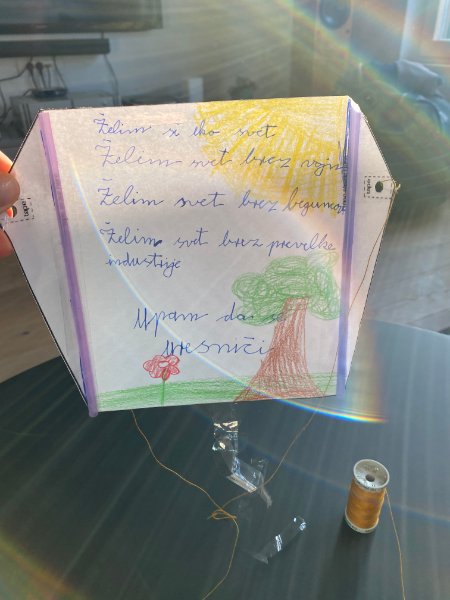 Želim si eko svet
Želim svet brez vojn
Želim svet brez beguncev
Želim svet brez prevelke
industrije
Upam da se
uresniči